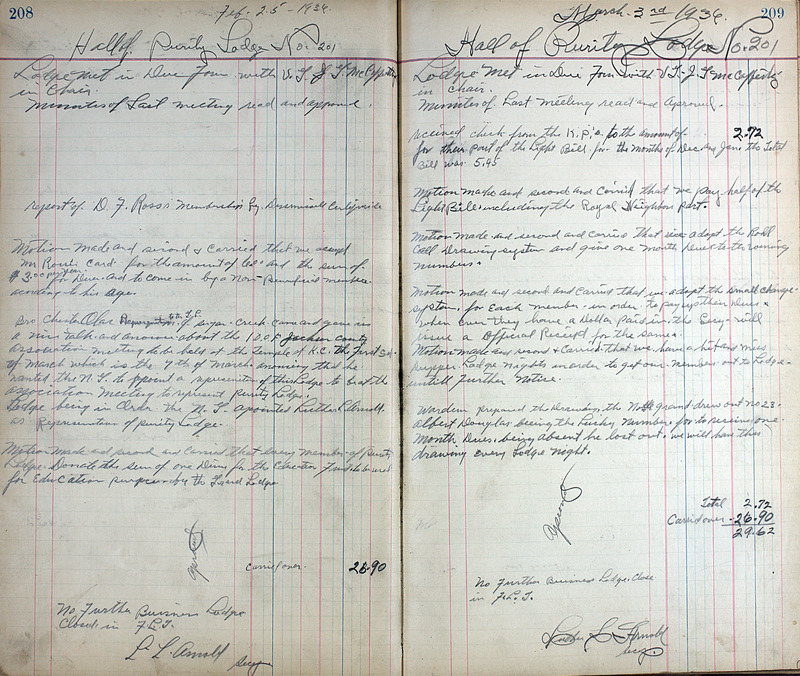 208
Feb. 25 - 1936
Hall of Purity Lodge No. 201
Lodge met in Due Form with V. G. J. T. McCaffity
in Chair.
Minutes of Last meeting read and approved.
report of D. F. Ross's membership by Dismissal Certificate
Motion made and second & Carried that we accept
Mr Card for the amount of and the sum of
$3.00 per year for Dues and to come in by a Non-Beneficial member
according to his age.
Bro Chester of Sugar Creek came and gave us
a nice talk and announce about the I.O.O.F Jackson County
association meeting to be held at the Temple of K.C. the first Sat.
of March which is the 7th of March announcing that he
wanted the N.G. to appoint a representive of this Lodge to be at the
association meeting to represent Purity Lodge.
Lodge being in Order the N.G. apointed Luther L. Arnold
as Representive of Purity Lodge.
Motion made and second and Carried that every member of Purity
Lodge Donate the sum of one Dime for the Education Fund to be used
for Education purposes by the Grand Lodge
carried over. 26.90
No Further Business Lodge
Closed in F. L. T.
L. L. Arnold
Secy
209
March - 3rd 1936.
Hall of Purity Lodge No. 201
Lodge Met in Due Form with V. G. J T McCaffity
in Chair.
Minutes of Last Meeting read and Aproved.
received check from the K.P.'s to the amount of 2.72
for their part of the Light Bill for the months of Dec and Jan. the Total
Bill was 5.45
Motion made and second and Carried that we pay half of the
Light Bill including the Royal Neighbors part.
Motion made and second and carried that we adapt the Roll
Call Drawing system and give one month Dues to the winning
numbers.
Motion made and second and Carried that we adapt the small change
system for Each member in order to pay up their Dues &
when ever they have a Dollar Paid in the Secy will
issue a Official Receipt for the same.
Motion made and second & Carried that we have a hit and miss
supper Lodge nights in order to get our members out to Lodge
untill Further Notice.
Wardem prepared the Drawing, the Noble grand drew out No 28.
Albert Douglas being the Lucky Number for to receive one
Month Dues. being absent he lost out. we will have this
drawing every Lodge night.
Total 2.72
Carried over - 26.90
29.62
No Further Business Lodge Close
in F. L. T.
Luther L Arnold
Secy.